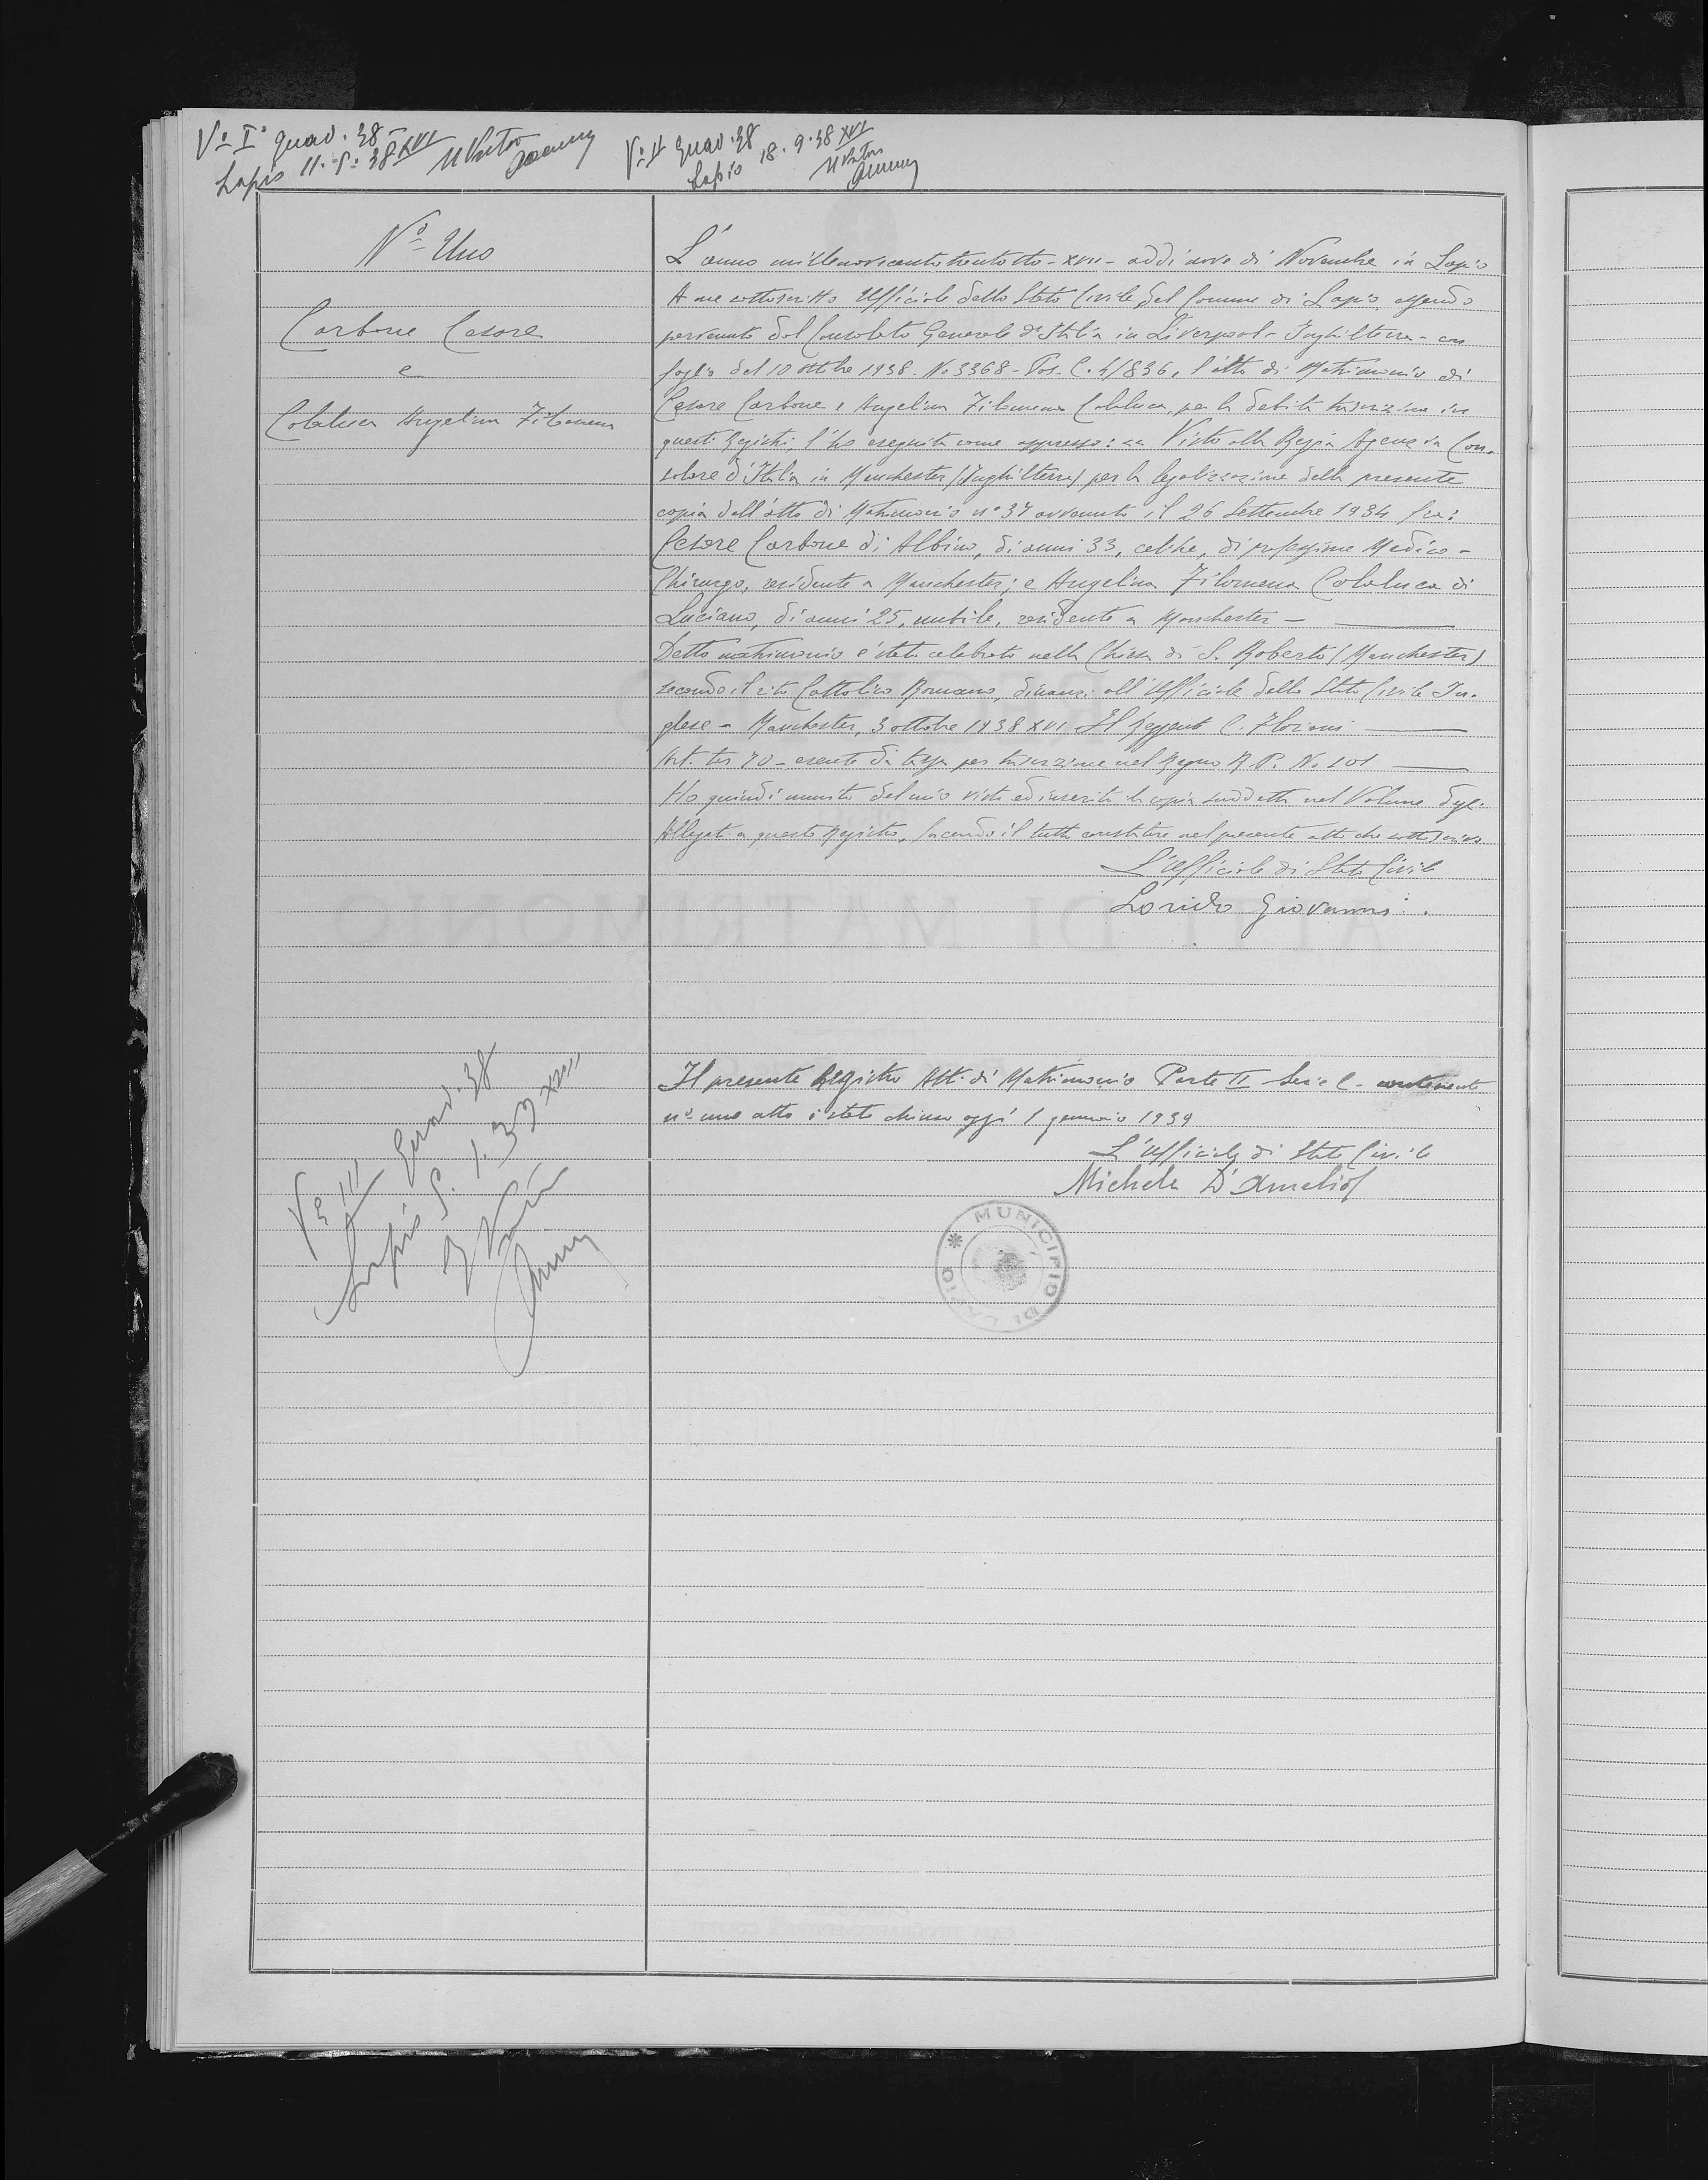 Vº Iº quad. 38
Lapio 11.5.38 XVI Il Pretore
Vº II quad. 38
Lapio 18.9.38 XVI
Il Pretore
Nº Uno
Carbone Cesare
e
Colaluca Angelina Filomena
L'anno millenovecentotrentotto - XVII - addì nove di Novembre in Lapio
A me sottoscritto Ufficiale dello Stato Civile del Comune di Lapio, essendo
pervenuto dal Consolato Generale d'Italia in Liverpool - Inghilterra - con
foglio del 10 ottobre 1938. No 3368 - Pos. C. 4/836, l'atto di Matrimonio di
Cesare Carbone e Angelina Filomena Colaluca, per la debita trascrizione in
questi Registri, l'ho eseguita come appresso: << Visto alla Regia Agenzia Con-
solare d'Italia in Manchester (Inghilterra) per la legalizzazione della presente
copia dell'atto di Matrimonio nº 37 avvenuto il 26 Settembre 1934 fra:
Cesare Carbone di Albino, di anni 33, celibe, di professione Medico -
Chirurgo, residente a Manchester; e Angelina Filomena Colaluca di
Luciano, di anni 25, nubile, residente a Manchester -
Detto matrimonio è stato celebrato nella Chiesa di S. Roberto (Manchester)
secondo il rito Cattolico Romano, dinanzi all'Ufficiale dello Stato Civile In-
glese - Manchester, 3 ottobre 1938 XVI Il Reggente C. Floriani
Art. ter 70 - esente da tassa per trascrizione nel Regno R. P. No 101
Ho quindi munito del mio visto ed inserita la copia suddetta nel Volume degli
Allegati a questo Registro, facendo il tutto constatare nel presente atto che sottoscrivo
L'Ufficiale di Stato Civile
Giovanni
Il presente Registro Atti di Matrimonio Parte II Serie C - contenente
nº uno atto è stato chiuso oggi 1 gennaio 1939
L'Ufficiale di Stato Civile
Michele D'Amelio
Vº III quad. 38
Lapio 5.1.39 XVII
Il Pretore
MUNICIPIO DI LAPIO